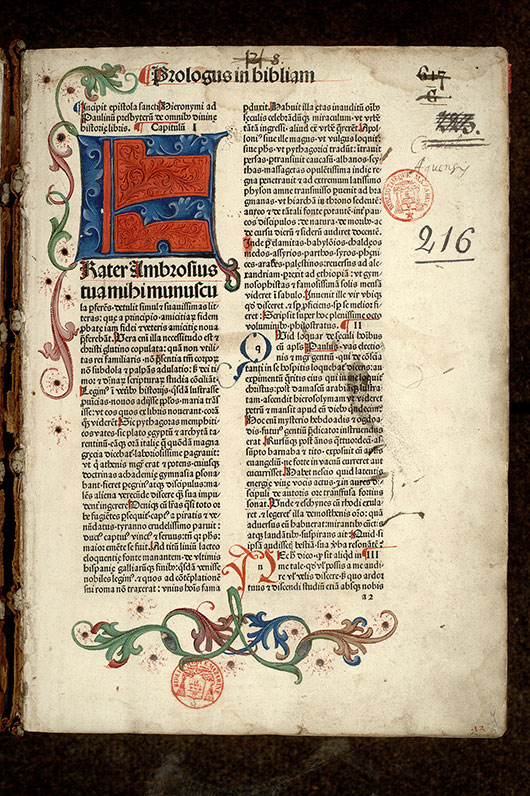 Prologus in bibliam
Incipit epistola sancti Hieronymi ad
Paulinũ presbyterũ de omnibꝰ diuine
historie libris. Capitulũ I
Frater Ambrosius
tua mihi munuscu
la ꝑferẽs. detulit simul ⁊ suauissimas lit
teras: que a principio amicitiaꝝ fidem
ꝓbate iam fidei ⁊ veteris amicicie noua
ꝑferebãt. Vera em̃ illa necessitudo est ⁊
christi glutino copulata: quã non vtili
tas rei familiaris nõ p̃sentia tm̃ corporꝝ
nõ subdola ⁊ palpãs adulatio: s̃ dei ti
mor ⁊ diuinaꝝ scripturaꝝ studia cõciliãt
Legimꝰ in veteribꝰ historijs q̃sdã lustrasse
ꝓuincias: nouos adijsse ppl̃os: maria trãs
isse: vt eos quos ex libris nouerant: corã
qꝫ viderẽt. Sic pythagoras memphiti
cos vates: sic plato egyptũ ⁊ archytã ta
rentinũ: eãdẽqꝫ orã italie q̃ quõdã magna
grecia dicebat̃: laboriosissime pagrauit:
vt qui athenis mgr̃ erat ⁊ potens: cuiusqꝫ
doctrinas achademie gymnasia ꝑsona
bant: fieret peregrinꝰ atqꝫ discipulus: ma
lẽs aliena verecũde discere: qꝫ sua impu
denter ingerere. Deniqꝫ cũ lr̃as q̃si toto or
be fugiẽtes ꝑsequit̃: captꝰ a piratis ⁊ ve
nũdatus: tyranno crudelissimo paruit:
ductꝰ captiuꝰ vinctꝰ ⁊ seruus: tñ qꝛ phs̃:
maior emẽte se fuit. Ad titũ liuiũ lacteo
eloquentie fonte manantem: de vltimis
hispanie galliarũqꝫ finibꝰ: q̃sdã venisse
nobiles legimꝰ: ⁊ quos ad cõtẽplationẽ
sui roma nõ traxerat: vnius hoĩs fama
ꝑduxit. Habuit illa etas inauditũ oĩbꝰ
seculis celebrãdũqꝫ miraculum: vt vrbẽ
tãtã ingressi: aliud extra vrbẽ q̃rerẽt. Apol
loniꝰ siue ille magus vt vulgus loquit̃
siue phs̃ vt pythagorici tradũt: ĩtrauit
persas: ptransiuit caucasũ: albanos: scy
thas: massagetas: opulẽtissima indie re
gna penetrauit: ⁊ ad extremum latissimo
physon amne transmisso: puenit ad brag
manas: vt hiarcã in throno sedentẽ
aureo ⁊ de tãtali fonte potantẽ: inter pau
cos discipulos: de natura: de moribꝰ: ac
de cursu dierũ ⁊ siderũ: audiret docentẽ.
Inde ꝑ elamitas: babylõios: chaldeos
medos: assyrios: parthos: syros: pheni
ces: arabes: palestinos: reuersus ad ale
xandriam: ꝑrexit ad ethiopiã: vt gym
nosophistas ⁊ famosissimã solis mensã
videret ĩ sabulo. Inuenit ille vir vbiqꝫ
qd̃ disceret: ⁊ semper ꝓficiens: semper se melior fi
eret: Scripsit super hoc plenissime octo
voluminibꝰ philostratus. II
Quid loquar de seculi hoĩbꝰ
cũ apls̃ Paulus vas electio
nis ⁊ mgr̃ gentiũ: qui de cõscia
tanti in se hospitis loquebatur dicens: an
experimentũ q̃ritis eius qui in me loquit̃
christus: post damascũ arabiãqꝫ lustra
tam ascendit hierosolymam vt videret
petrũ ⁊ mansit apud eũ diebꝰ qndecim.
Hoc em̃ mysterio hebdoadis ⁊ ogdoa
dis: futurꝰ gentiũ p̃dicator instruendus
erat. Rursũqꝫ post ãnos q̃ttuordeci: as
sũpto barnaba ⁊ tito: exposuit cũ apls̃
euangeliũ: ne forte in vacuũ curreret aut
cucurrisset. Habet nescio quid latentis
energie viue vocis actus: ⁊ in aures di
scipuli de autoris ore transfusa: fortius
sonat. Vnde ⁊ eschynes cũ rhodi exula
ret ⁊ legeret̃ illa demostenis oratio: quã
aduersus eũ habuerat: mirantibꝰ cũctis
atqꝫ laudãtibꝰ: suspirans ait: Quid si
ipsam audissetis bestiã: sua verba resonantẽ?
Nec hoc dico qꝫ sit aliqd in III
me tale: qd̃ vel possis a me audi
re vel velis discere: sed quo ardor
tuus ⁊ discendi studiũ etiã absqꝫ nobis
a2
216